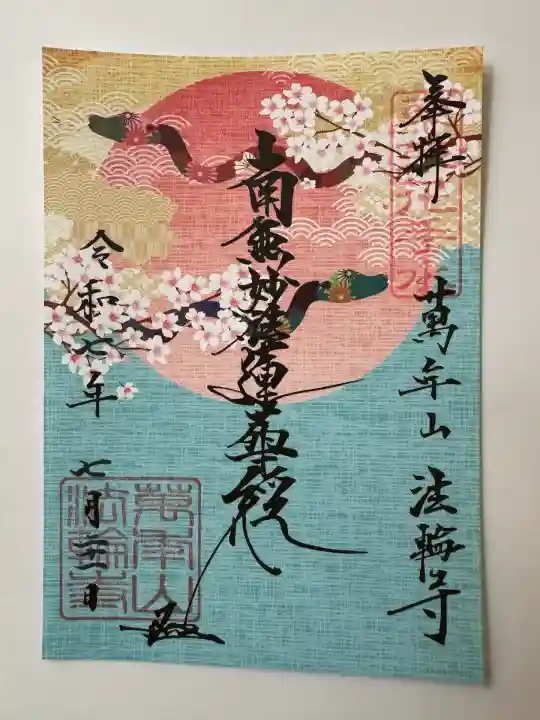 奉拝
萬年山 法輪寺
南無妙法蓮華経
令和七年 七月二十一日
萬年山
法輪寺